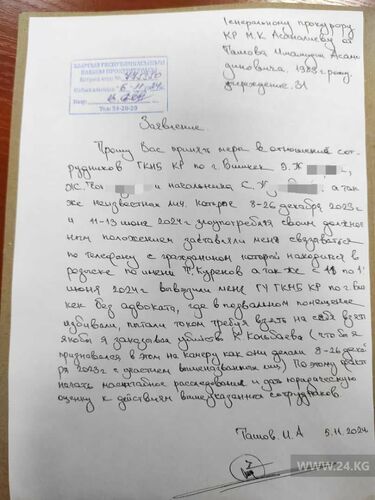 Генеральному прокурору
КР М.К Асаналиеву от
КЫРГЫЗ РЕСПУБЛИКАСЫНЫН
БАШКЫ ПРОКУРАТУРАСЫ
Тел: 54-28-29
1983 г. рожд.
Заявление.
Прошу Вас принять мера в отношении сот-
рудников ГКНБ КР по г. Бишкек Э. Ж
Ж. и начальника С. К а так
же неизвестных лиц. Которые 8-26 декабря 2023 г
и 11-13 июня 2024 г злоупотребляя своим должност
ным положением заставляли меня связаться
по телефону с гражданином который находится в
розыске по имени Куренов а так же с по
июня 2024 г вывозили меня ГУ ГКНБ КР по г. Биш
кек без адвоката, где в подвальном помещение
избивали, пытали током требуя взять на себя
якобы я заказывал убийство К. (чтобы я
признавался в этом на камеру как они делали 8-26 декаб
ря 2023 г с участием вышеназванных лиц) По этому факту
начать масштабное расследование и дать юридическую
оценку к действиям вышеуказанных сотрудников.
И.А 5.11.2024
WWW.24.KG